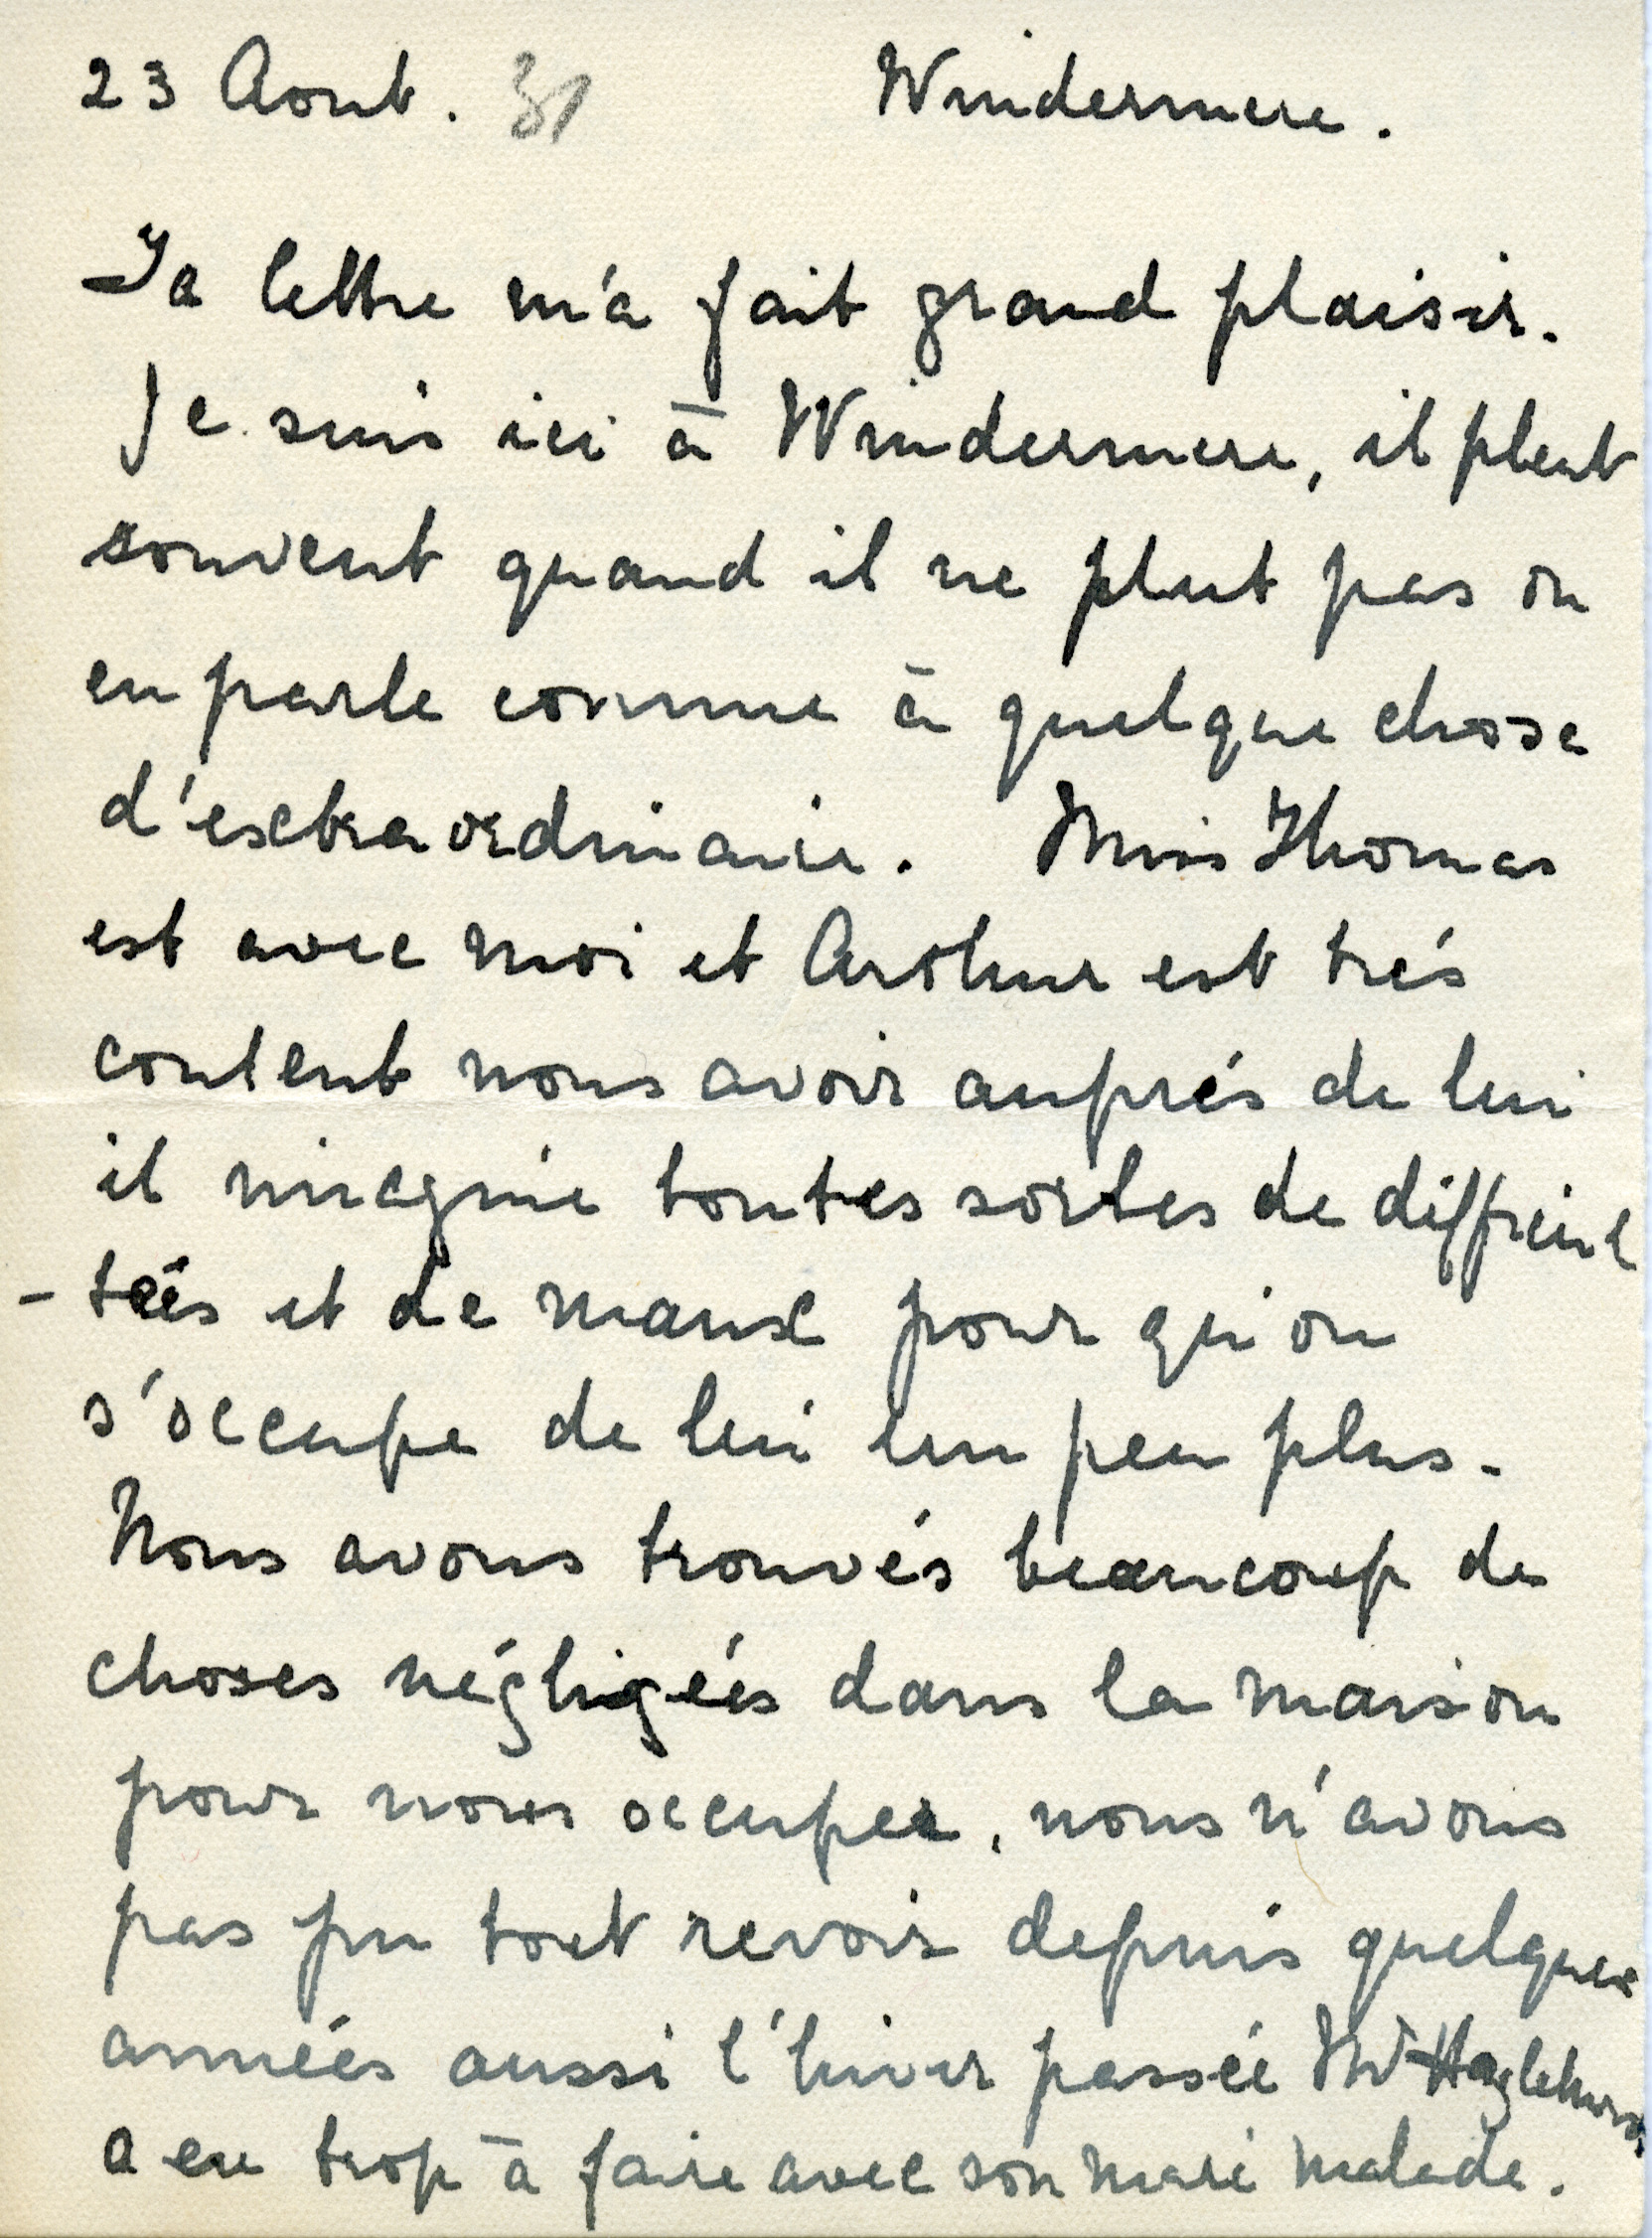 23 Aout. 31 Windermere.
Ta lettre m'a fait grand plaisir.
Je suis ici à Windermere, il pleut
souvent quand il ne plut pas on
en parle comme à quelque chose
d'extraordinaire. Miss Thomas
est avec moi et Arthur est trés
content nous avoir auprés de lui
il imagine toutes sortes de difficul
-tés et de maux pour qu'on
s'occupe de lui un peu plus.
Nous avons trouvés beaucoup de
choses négligées dans la maison
pour nous occuper, nous n'avons
pas pu tout revoir depuis quelques
années aussi l'hiver passée
a eu trop à faire avec son mari malade.